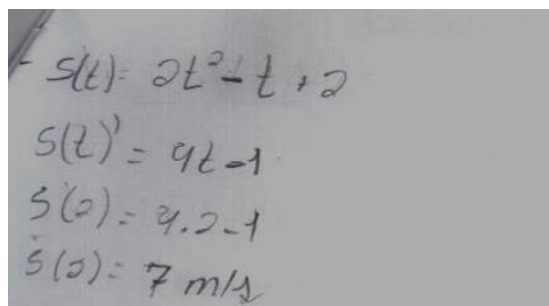 - S(t) = 2t² - t + 2
S(t)' = 4t - 1
S(2) = 4.2 - 1
S(2) = 7 m/s